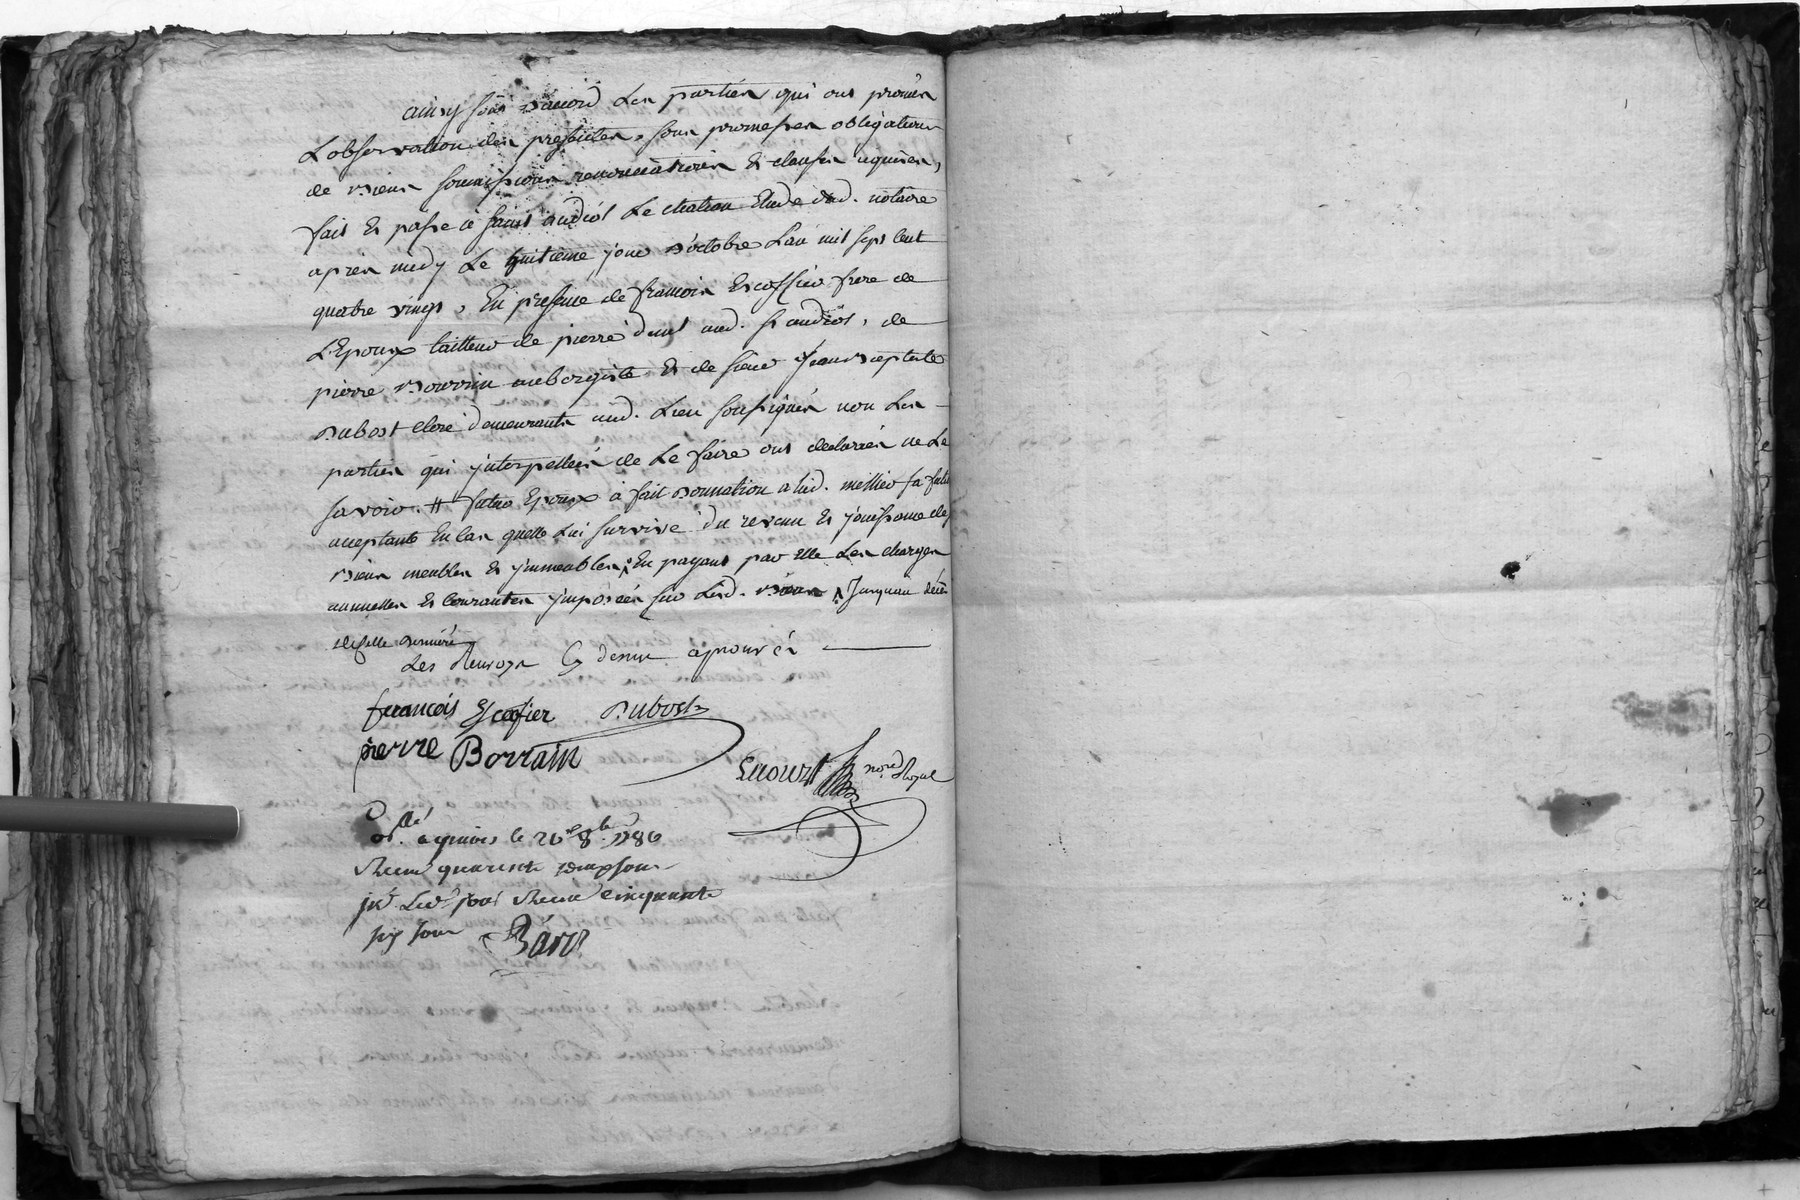 ainsy sont d'accord les parties, qui ont promis
L'observation des presentes, sous promesses obligations
de biens soumissions renonciations & clauses requises,
fait & passé à saint andiol le chateau Etude dud. notaire
apres midy le huitieme jour d'octobre L'an mil sept cent
quatre vingt, En presence de francois Escoffier frere de
L'Epoux tailleur de pierre dud. aud. st andiol, de
pierre Bourrin aubergiste & de sieur jean baptiste
Dubost clerc demeurants aud. Lieu soussignés non Les
parties qui jnterpellées de Le faire ont declarées ne Le
savoir. # futur Epoux à fait donnation a lad. mellier sa future
acceptante En cas quelle Lui survive du revenu & jouissance des
biens meubles & jmmeubles, En payant par Elle Les charges
annuelles & courantes jmposées sur Lesd. biens Jusquau décès
de celle derniere
Les Renvoys Cy dessus aprouvés
francois Escofier Dubost
pierre Borrain
nore Royal
Collé le 26 8bre 1780
Recu quarante deux sous
Recu cinquante
six sous